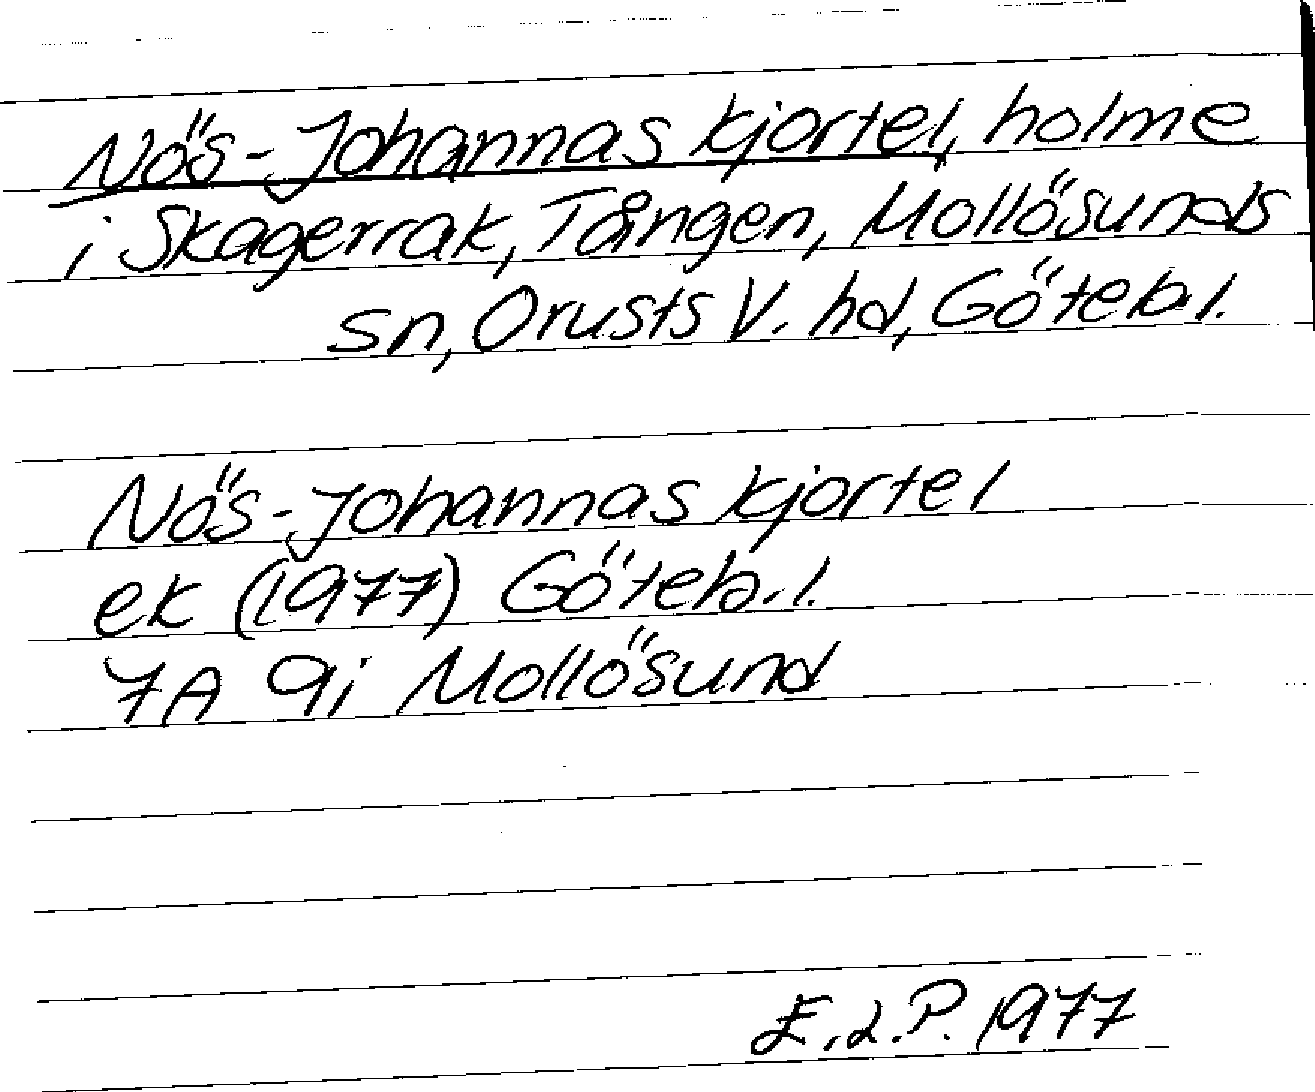 Nös-Johannas kjortel, holme
i Skagerrak, Tången, Mollösunds
sn, Orusts V. hd, Göteb.l.
Nös-Johannas kjortel
ek (1977) Göteb.l.
7A 9i Mollösund
E.d.P. 1977